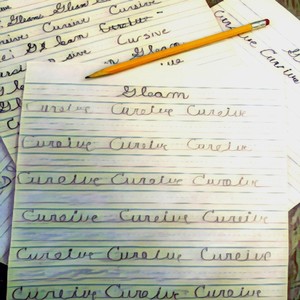 Gleam Cursive
Cursive Cursive
Cursive
Gleam
Cursive Cursive
Gleam
Cursive Cursive Cursive
Cursive Cursive Cursive
Cursive Cursive Cursive
Cursive Cursive Cursive
Cursive Cursive Cursive
Cursive Cursive Cursive